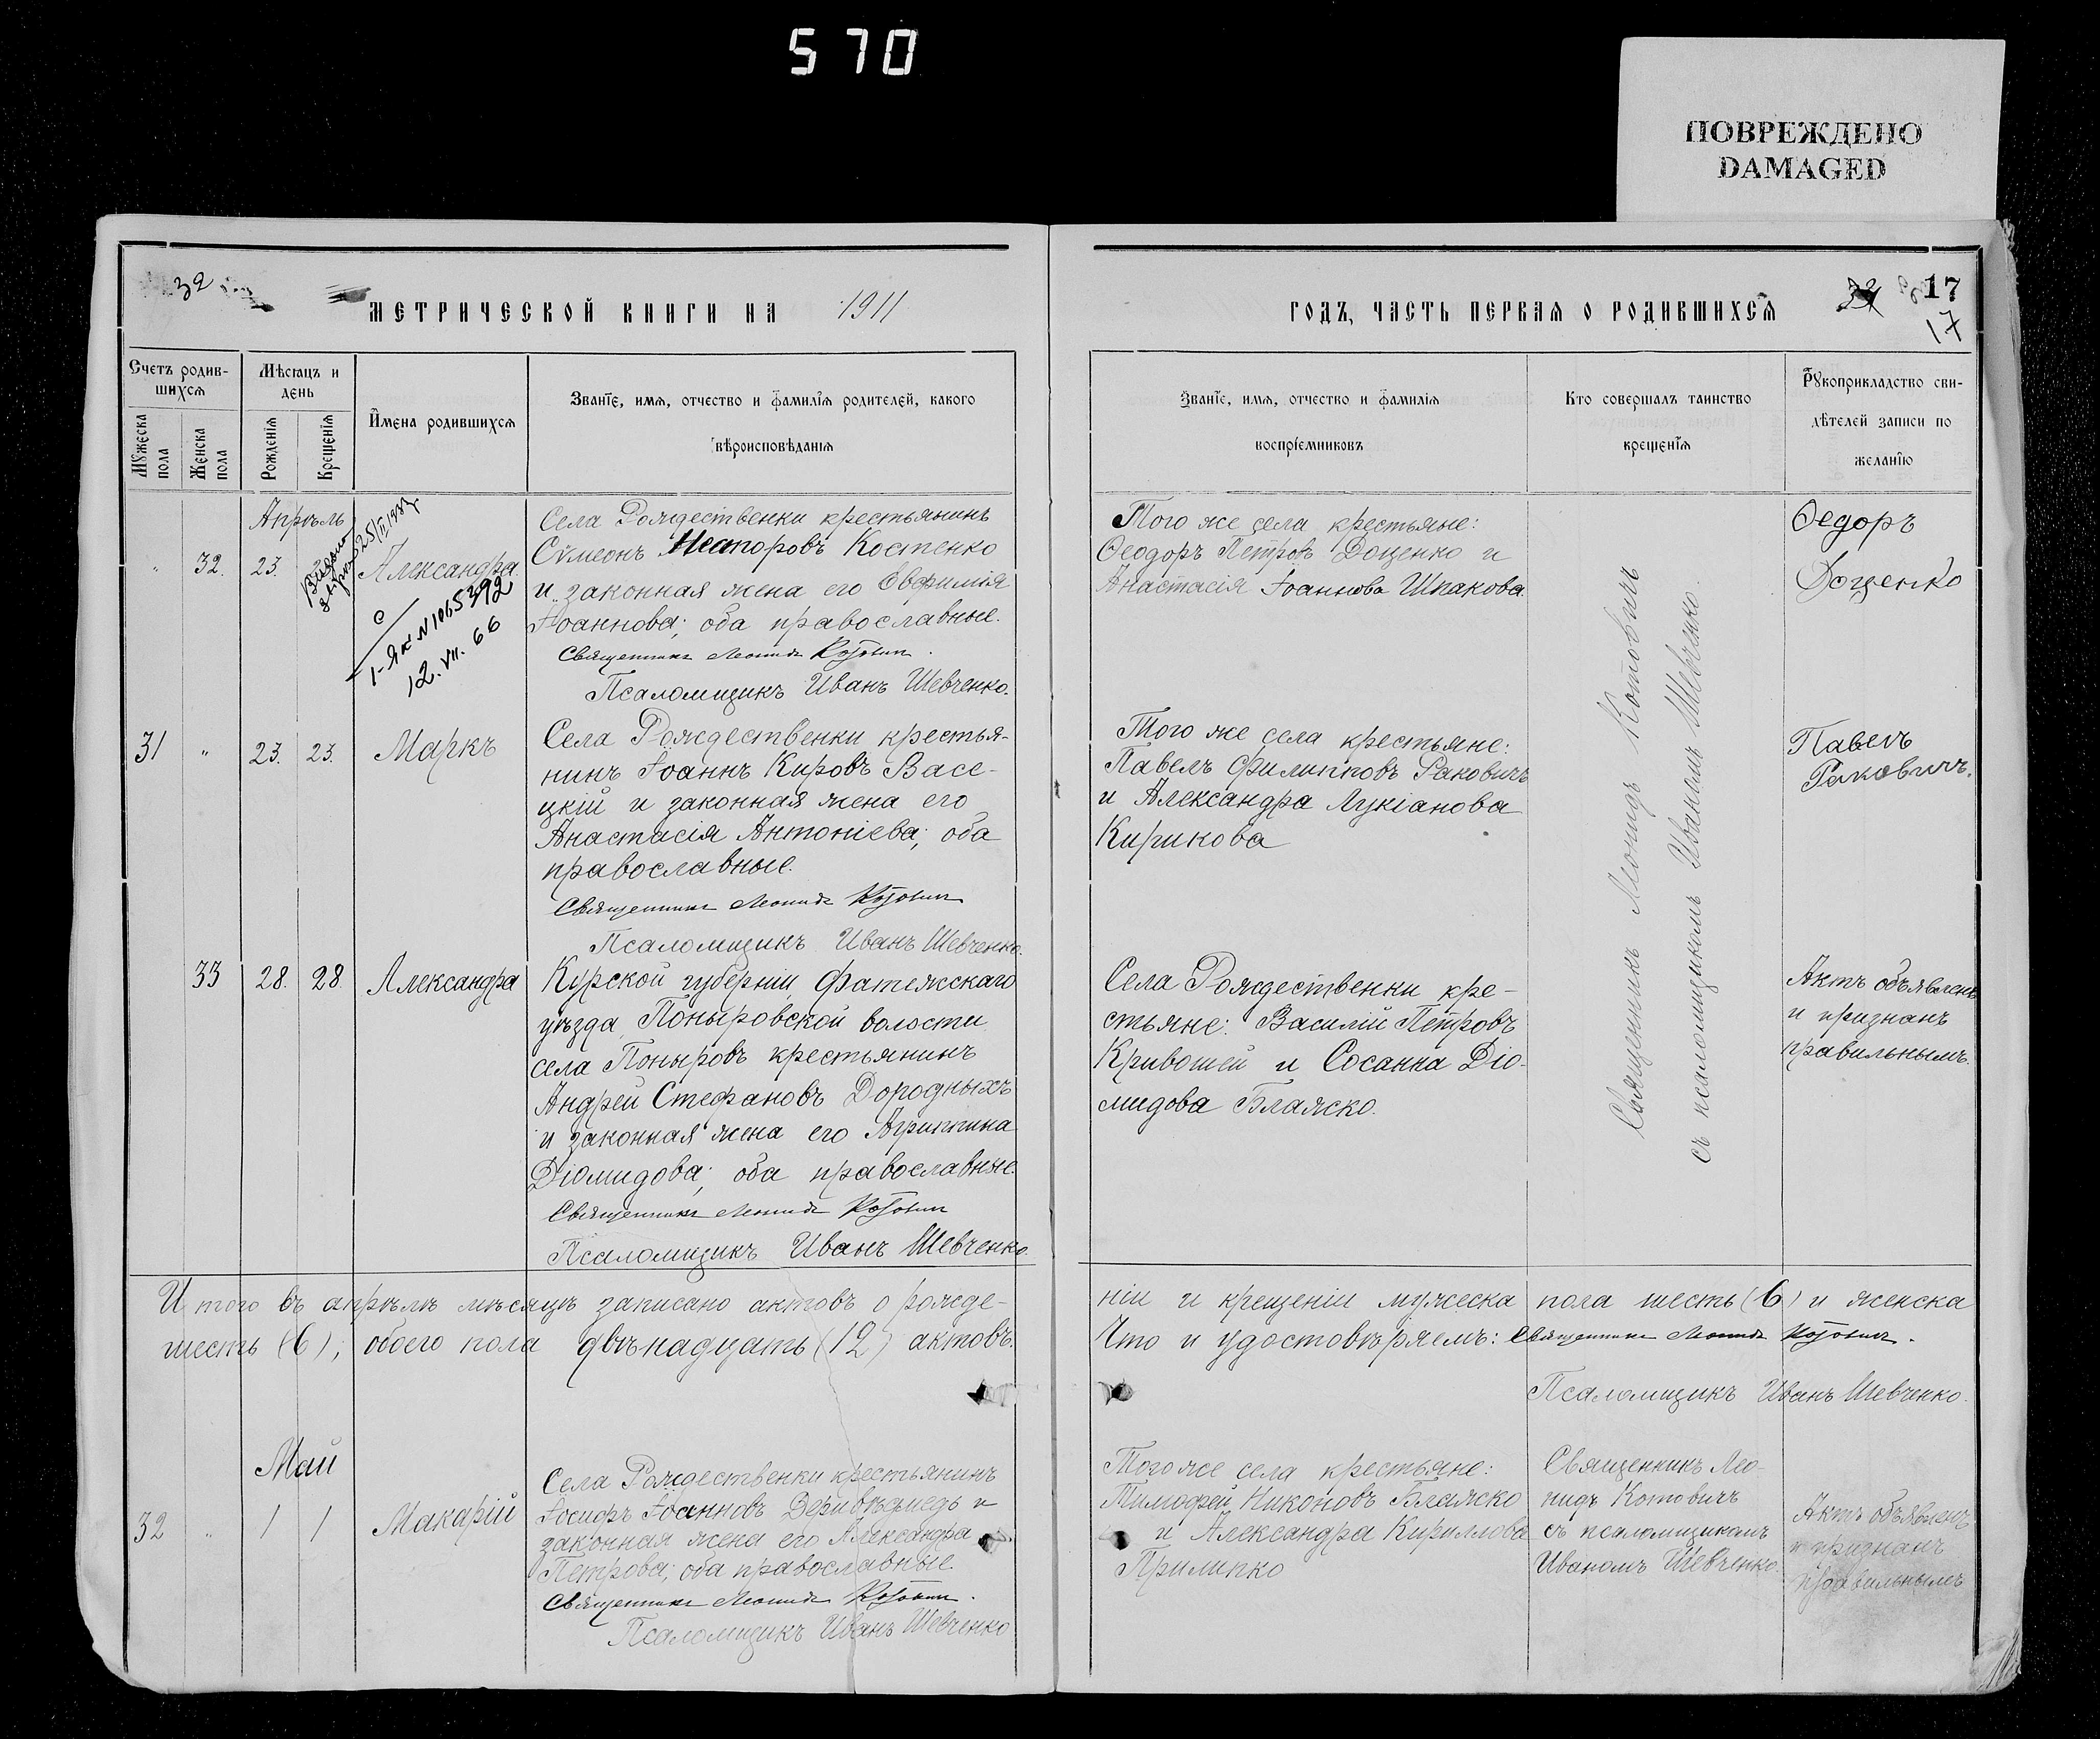 570
ПОВРЕЖДЕНО
DAMAGED
32
МЕТРИЧЕСКОЙ КНИГИ НА 1911
Счетъ родив-
шихся
Мѣсяцъ и
день
Имена родившихся
Званіе, имя, отчество и фамилія родителей, какого
вѣроисповѣданія
Мужеска
пола
Женска
пола
Рожденія
Крещенія
Апрѣль
" 32. 23. Александра
С
1-ЯК N 1065392
12.VII.66
Села Рождественки крестьянинъ
Сѵмеонъ Несторовъ Костенко
и законная жена его Евфимія
Іоаннова; оба православные.
Священникъ Леонидъ Котовичъ.
Псаломщикъ Иванъ Шевченко.
31 " 23. 23. Маркъ
Села Рождественки крестья-
нинъ Іоаннъ Кировъ Васе-
цкій и законная жена его
Анастасія Антоніева; оба
православные.
Священникъ Леонидъ Котовичъ
Псаломщикъ Иванъ Шевченко.
33 28. 28 Александра
Курской губерніи, Фатежскаго
уѣзда Поныровской волости
села Поныровъ крестьянинъ
Андрей Стефановъ Дородныхъ
и законная жена его Агриппина
Діомидова; оба православные.
Священникъ Леонидъ Котовичъ
Псаломщикъ Иванъ Шевченко.
Итого въ апрѣлѣ мѣсяцѣ записано актовъ о рожде-
шесть (6), обоего пола двѣнадцать (12) актовъ.
Май
32 " 1 1 Макарій
Села Рождественки крестьянинъ
Іосифъ Іоанновъ Деривѣдмедь и
законная жена его Александра
Петрова; оба православные.
Священникъ Леонидъ Котовичъ.
Псаломщикъ Иванъ Шевченко
ГОДЪ, ЧАСТЬ ПЕРВАЯ О РОДИВШИХСЯ
17
17
Званіе, имя, отчество и фамилія
воспріемниковъ
Кто совершалъ таинство
крещенія
Рукоприкладство сви-
дѣтелей записи по
желанію
Того же села крестьяне:
Ѳеодоръ Петровъ Доценко и
Анастасія Іоаннова Шпакова.
Ѳедоръ
Доценко
Священникъ Леонидъ Котовичъ
съ псаломщикомъ Иваномъ Шевченко
Того же села крестьяне:
Павелъ Филипповъ Раковичъ
и Александра Лукіанова
Кирикова
Павелъ
Раковичъ.
Села Рождественки кре-
стьяне: Василій Петровъ
Кривошей и Сосанна Діо-
мидова Блажко.
Актъ объявленъ
и признанъ
правильнымъ.
ніи и крещеніи мужеска пола шесть (6) и женска
Что и удостовѣряемъ: Священникъ Леонидъ Котовичъ.
Псаломщикъ Иванъ Шевченко.
Того же села крестьяне:
Тимофей Никоновъ Блажко
и Александра Кириллова
Прилипко
Священникъ Лео-
нидъ Котовичъ
съ псаломщикомъ
Иваномъ Шевченко.
Актъ объявленъ
и признанъ
правильнымъ